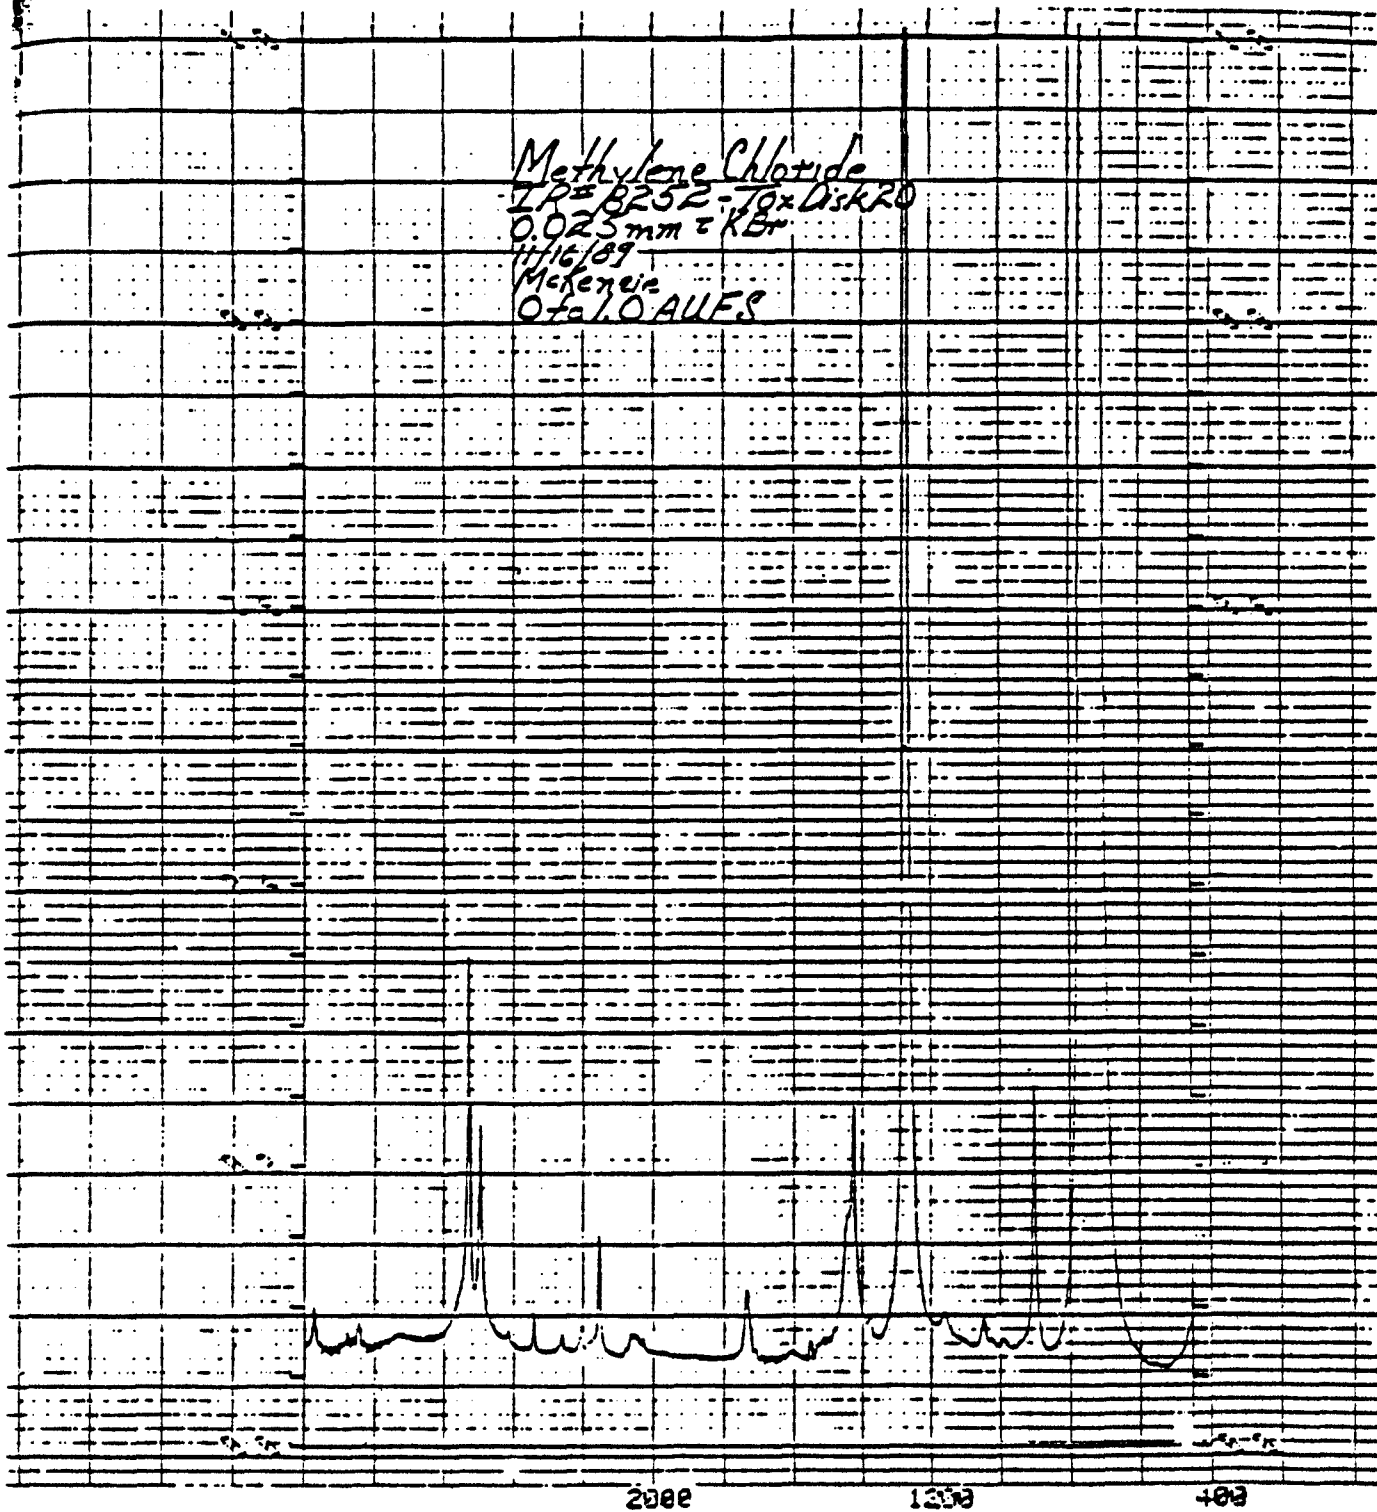 Methylene Chloride
IR# 8252 - Tox Disk 20
0.025 mm c̄ KBr
11/16/89
McKenzie
0 to 1.0 AUFS
2000 1200 400